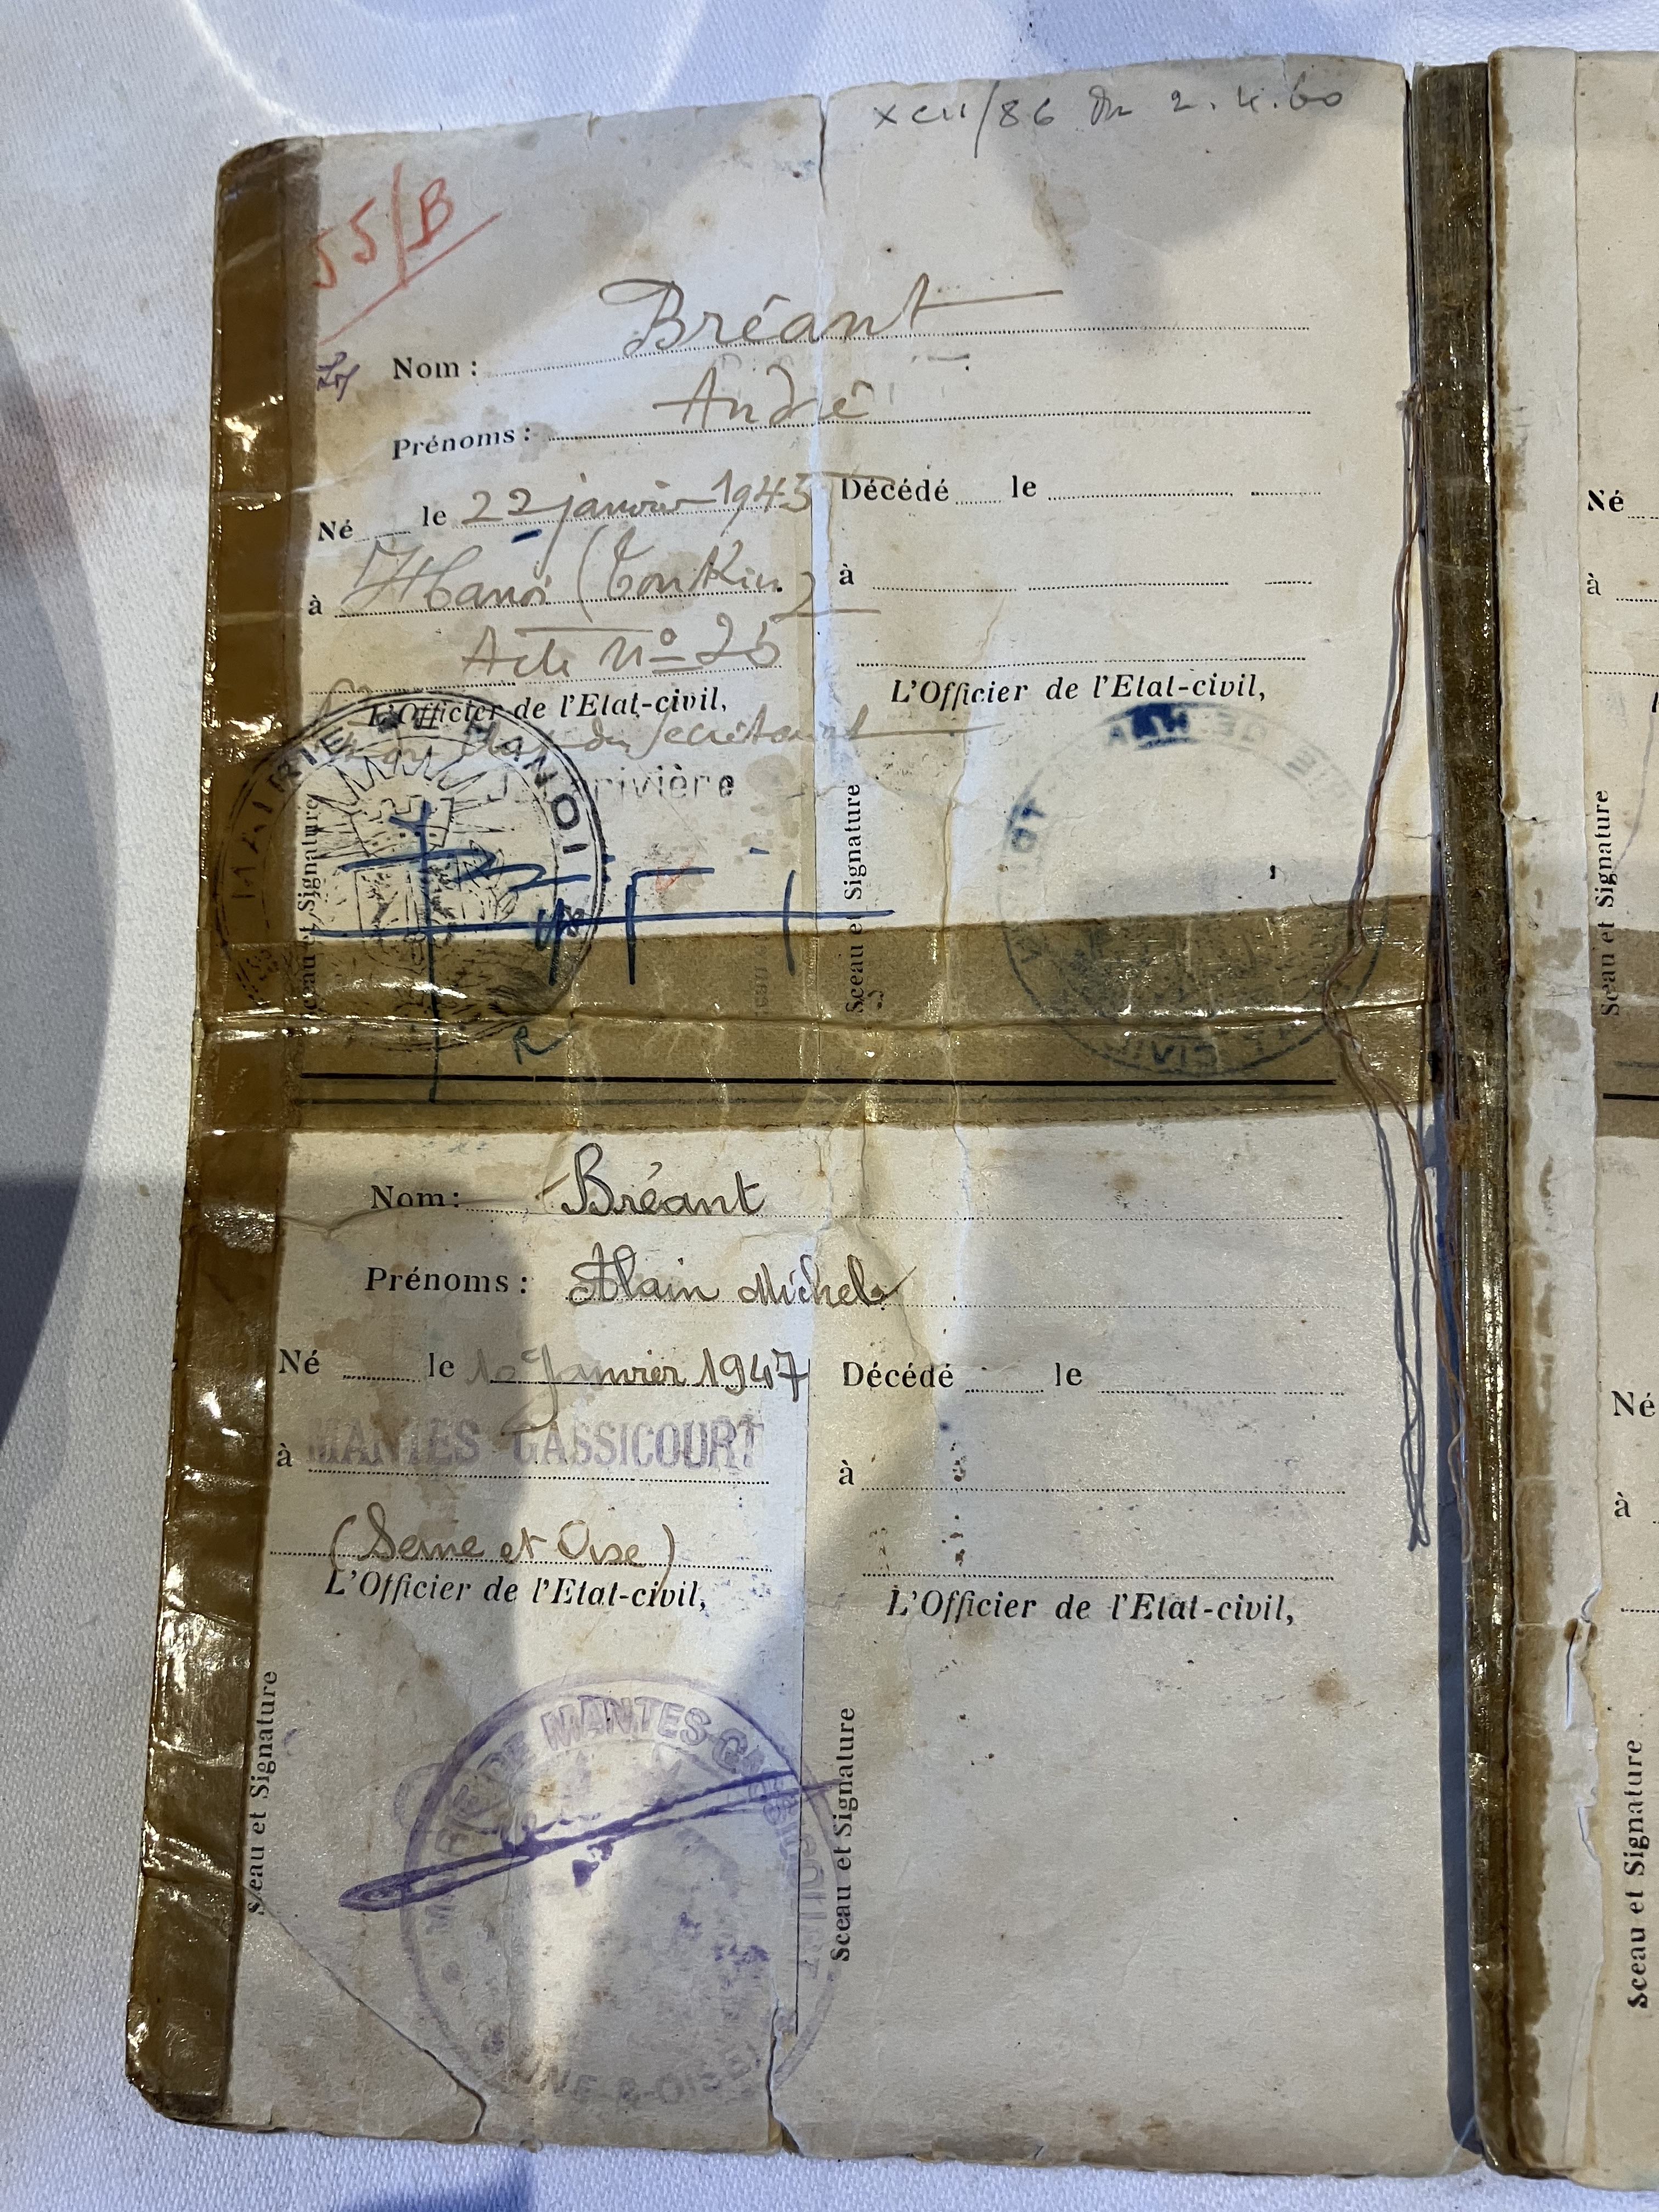 55/B
/86 du 2.4.60
Nom : Bréant
Prénoms : André
Né le 22 janvier 1945
à Hanoi (Tonkin)
Acte n° 26
L'Officier de l'Etat-civil,
du Secrétariat
rivière
MAIRIE DE HANOI
Sceau et Signature
R
Décédé le
à
L'Officier de l'Etat-civil,
Sceau et Signature
Nom : Bréant
Prénoms : Alain Michel
Né le 10 Janvier 1947
à MANTES GASSICOURT
(Seine et Oise)
L'Officier de l'Etat-civil,
Sceau et Signature
MAIRIE DE MANTES-GASSICOURT
SEINE-&-OISE
Décédé le
à
L'Officier de l'Etat-civil,
Sceau et Signature
Né
à
Sceau et Signature
Né
à
Sceau et Signature